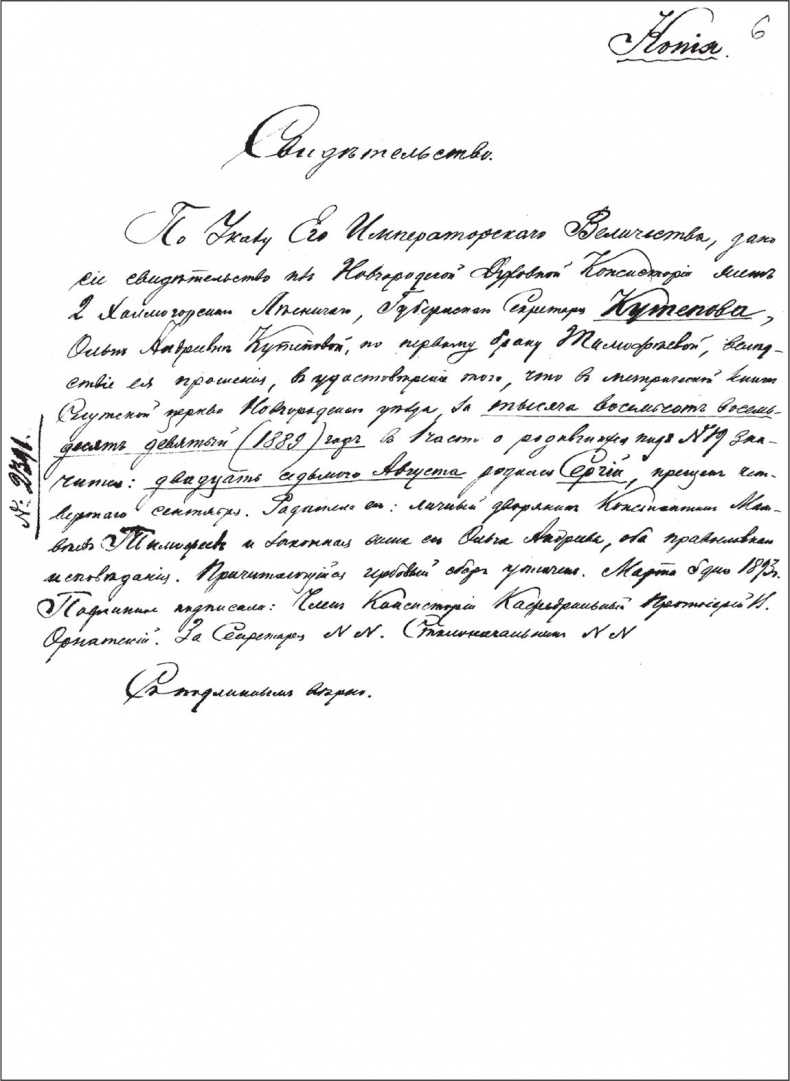 Копія. 6
Свидѣтельство.
По Указу Его Императорскаго Величества, дано
сіе свидѣтельство изъ Новгородской Духовной Консисторіи женѣ
2 Холмогорскаго Лѣсничаго, Губернскаго Секретаря Кутепова,
Ольгѣ Андреевнѣ Кутеповой, по первому браку Тимофѣевой, вслѣд-
ствіе ея прошенія, въ удостовѣреніе того, что въ метрической книгѣ
Слутской церкви Новгородскаго уѣзда, за тысяча восемьсотъ восемь-
десятъ девятый (1889) годъ въ 1 части о родившихся подъ № 19 зна-
чится: двадцать седьмого Августа родился Сергій, крещенъ чет-
вертаго сентября. Родители его: личный дворянинъ Константинъ Мат-
вѣевъ Тимофеевъ и законная жена его Ольга Андреева, оба православнаго
исповѣданія. Причитающійся гербовый сборъ уплаченъ. Марта 8 дня 1893 г.
Подлинное подписали: Членъ Консисторіи Кафедральный Протоіерей И.
Орнатскій. За Секретаря N N. Столоначальникъ N N
Съ подлиннымъ вѣрно.
№ 2391.